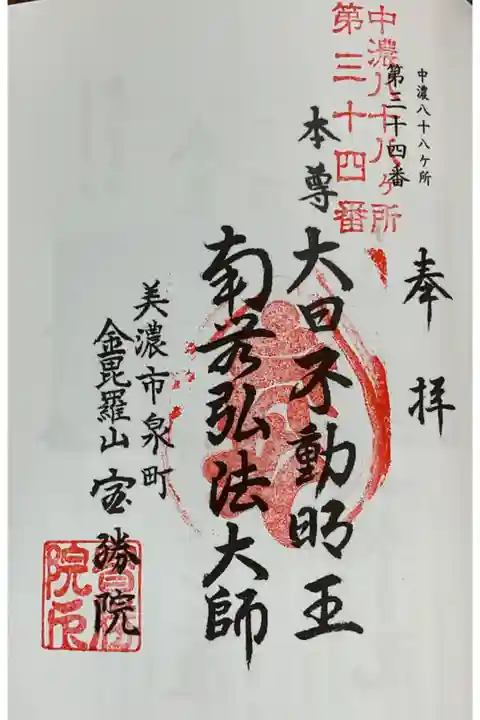 中濃八十八ケ所
第三十四番
中濃八十八ヶ所
第三十四番
奉拝
本尊
大日不動明王
南無弘法大師
美濃市泉町
金毘羅山 宝勝院